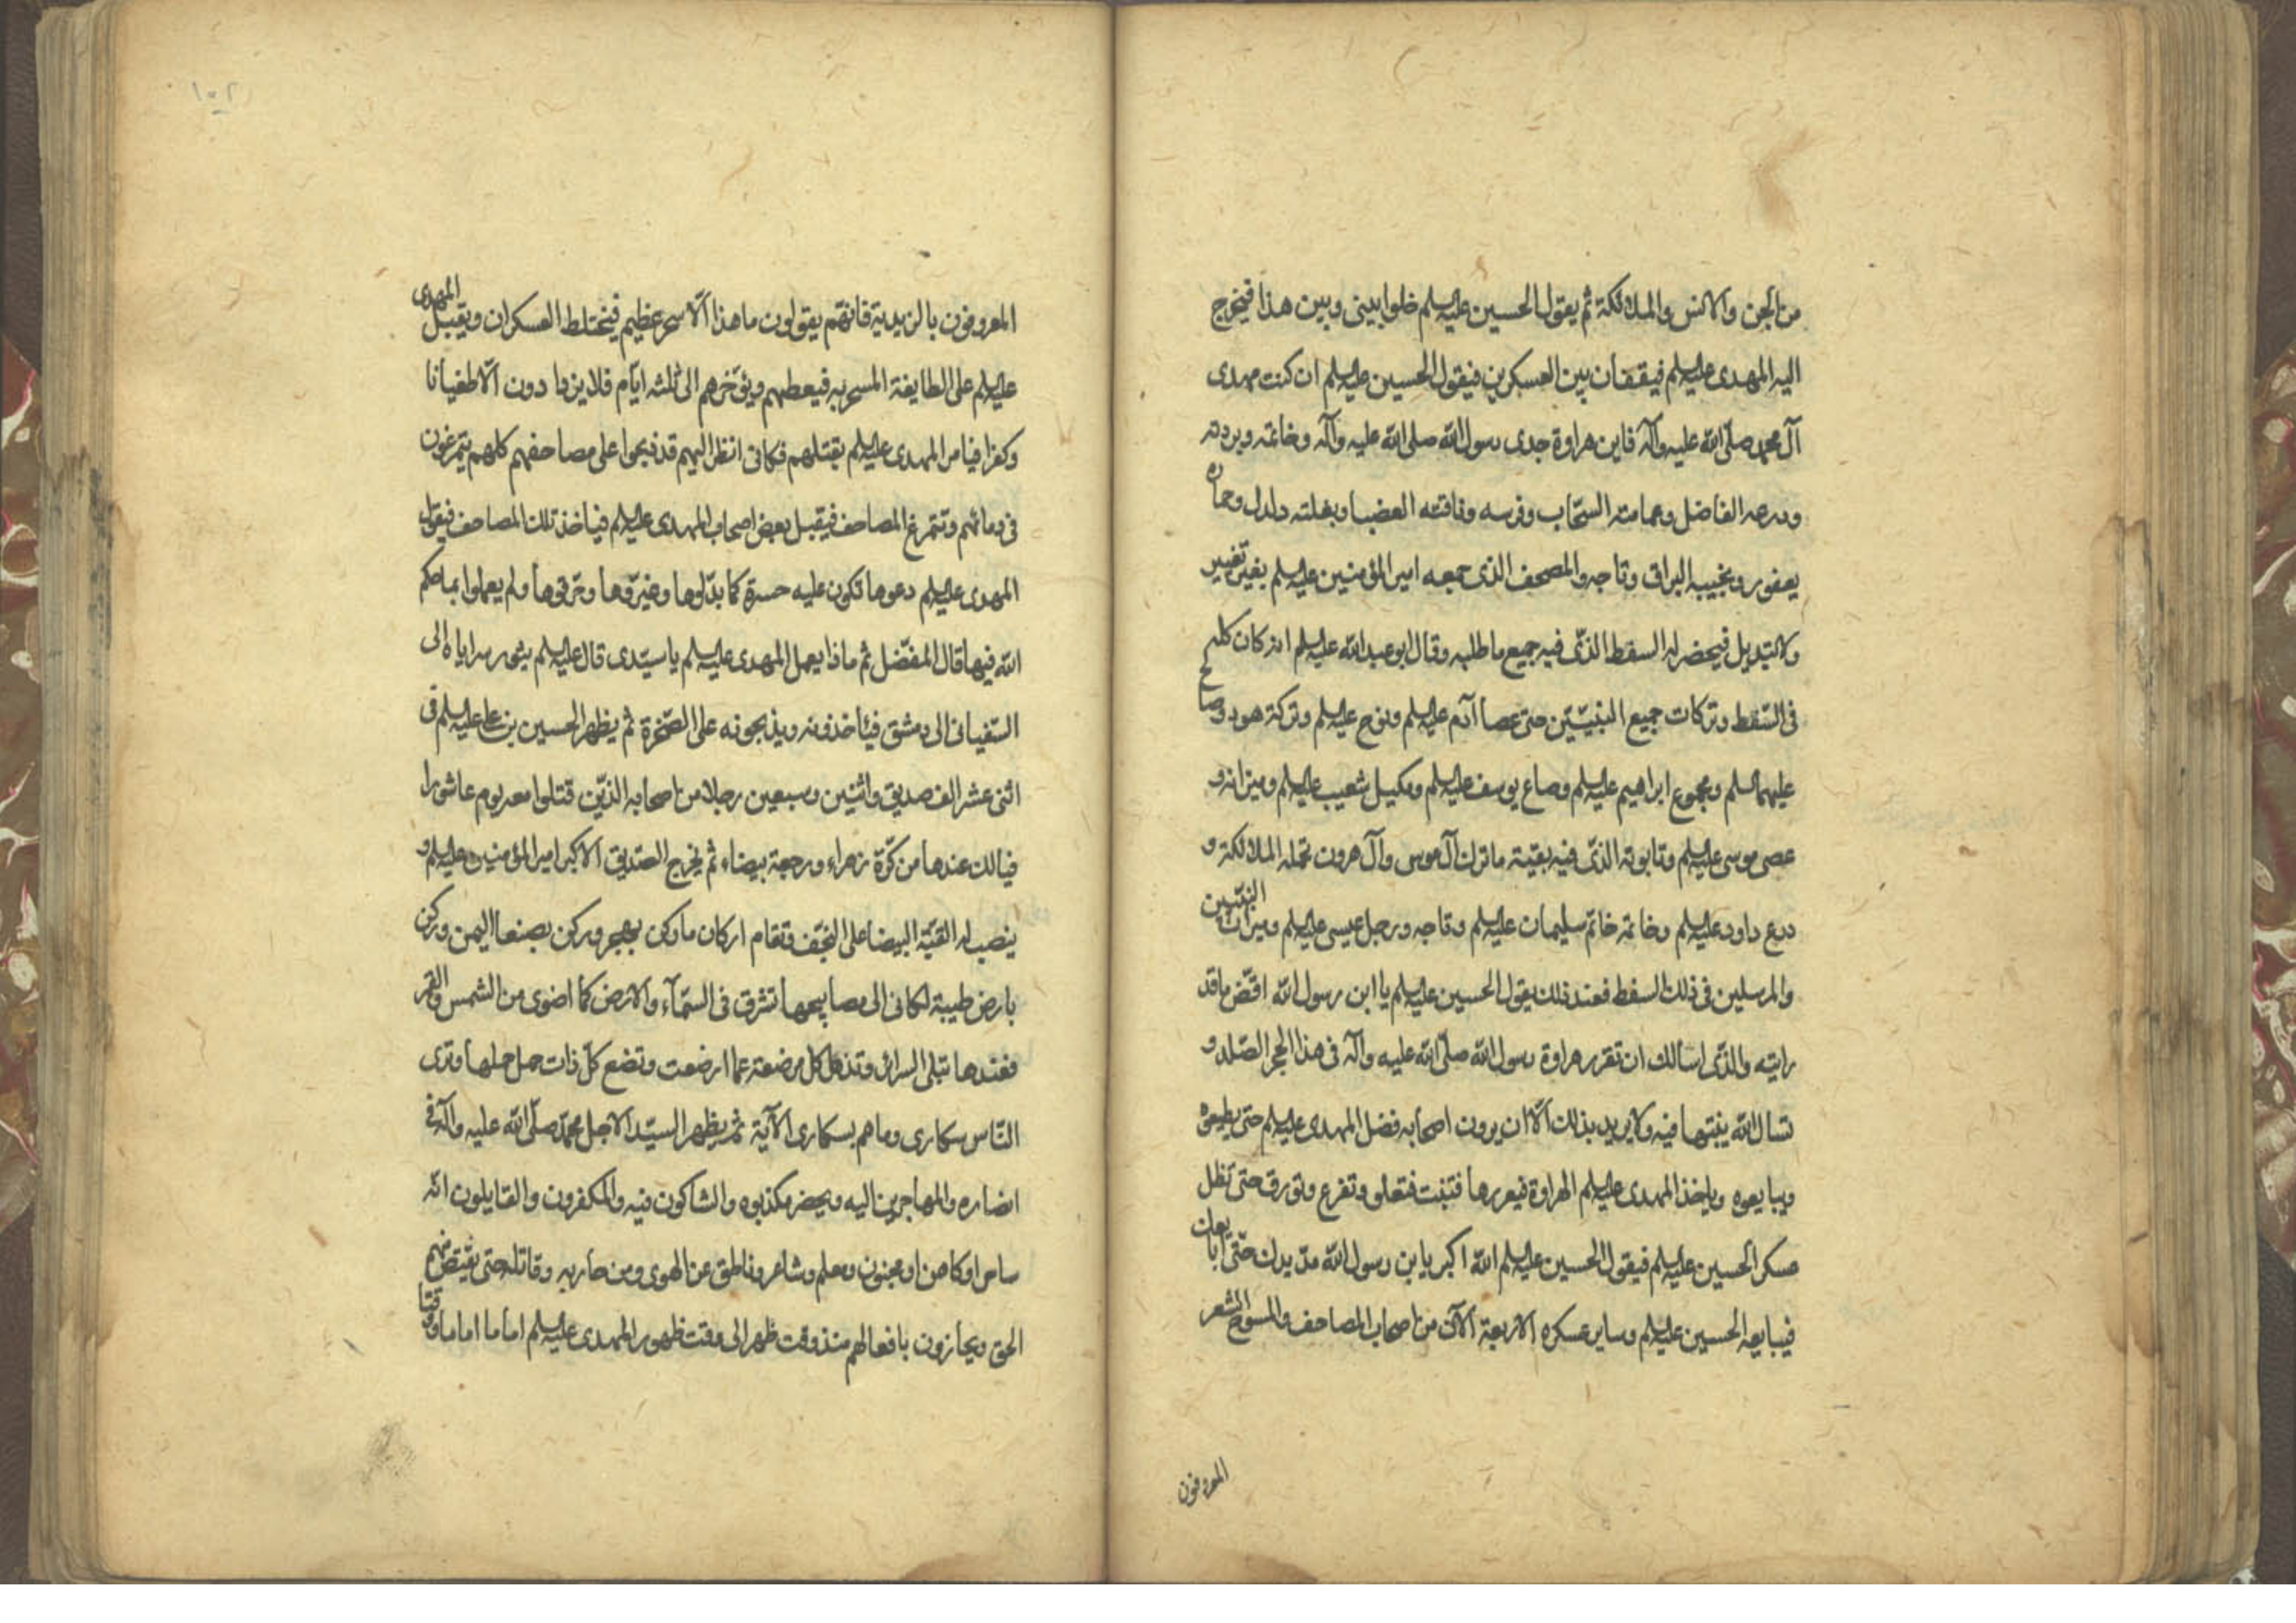 من الجن والانس والملائكة ثم يقول الحسين عليه السلم خلوا بيني وبين هذا فيخرج
اليه المهدى عليه السلم فيقفان بين العسكرين فيقول الحسين عليه السلم ان كنت مهدى
آل محمد صلى الله عليه وآله فاين هراوة جدى رسول الله صلى الله عليه وآله وخاتمه وبردته
ودرعه الفاضل وعمامته السحاب وفرسه وناقته العضبا وبغلته دلدل وحماره
يعفور ونجيبه البراق وتاجه والمصحف الذى جمعه امير المؤمنين عليه السلم بغير تغيير
ولا تبديل فيحضر له السفط الذى فيه جميع ما طلبه وقال ابو عبد الله عليه السلم انه كان كله
فى السفط وتركات جميع النبيين حتى عصا آدم عليه السلم ونوح عليه السلم وتركة هود وصالح
عليهما السلم ومجموع ابراهيم عليه السلم وصاع يوسف عليه السلم ومكيل شعيب عليه السلم وميزانه و
عصى موسى عليه السلم وتابوته الذى فيه بقية ما ترك آل موسى وآل هرون تحمله الملائكة و
درع داود عليه السلم وخاتمه خاتم سليمان عليه السلم وتاجه ورحل عيسى عليه السلم وميراث النبيين
والمرسلين فى ذلك السفط فعند ذلك يقول الحسين عليه السلم يا ابن رسول الله اقض ما قد
رايته والذى اسالك ان تقرر هراوة رسول الله صلى الله عليه وآله فى هذا الحجر الصلد و
تسال الله ينبتها فيه ولا يريد بذلك الا ان يرون اصحابه فضل المهدى عليه السلم حتى يطيعوه
ويبايعوه وياخذ المهدى عليه السلم الهراوة فيغررها فتنبت فتعلو وتفرع وتورق حتى تظل
عسكر الحسين عليه السلم فيقول الحسين عليه السلم الله اكبر يا بن رسول الله مد يدك حتى ابايعك
فيبايعه الحسين عليه السلم وساير عسكره الا اربعة آلاف من اصحاب المصاحف والمسوح الشعر
المعروفون
١٠٢
المعروفون بالزيدية فانهم يقولون ما هذا الا سحر عظيم فيختلط العسكران ويقبل المهدى
عليه السلم على الطايفة المسحربه فيعظهم ويؤخرهم الى ثلثه ايام فلا يزدادون الا طغيانا
وكفرا فيامر المهدى عليه السلم بقتلهم فكانى انظر اليهم قد ذبحوا على مصاحفهم كلهم يتمرغون
فى دمائهم وتتمرغ المصاحف فيقبل بعض اصحاب المهدى عليه السلم فياخذ تلك المصاحف فيقول
المهدى عليه السلم دعوها تكون عليه حسرة كما بدلوها وغيروها وحرفوها ولم يعملوا بما حكم
الله فيها قال المفضل ثم ماذا يعمل المهدى عليه السلم يا سيدى قال عليه السلم يثور سراياه الى
السفيانى الى دمشق فيأخذونه ويذبحونه على الصخرة ثم يظهر الحسين بن على عليه السلم فى
اثنى عشر الف صديق واثنين وسبعين رجلا من اصحابه الذين قتلوا معه يوم عاشورا
فيالك عندها من كرة زهراء ورجعة بيضاء ثم يخرج الصديق الاكبر امير المؤمنين عليه السلم و
ينصب له القبة البيضا على النجف وتقام اركان ما ركن بهجر وركن بصنعا اليمن وركن
بارض طيبة لكانى الى مصابيحها تشرق فى السمآء والارض كما اضوى من الشمس والقمر
فعندها تبلى السرائر وتذهل كل مرضعة عما ارضعت وتضع كل ذات حمل حملها وترى
الناس سكارى وما هم بسكارى الآية ثم يظهر السيد الاجل محمد صلى الله عليه وآله فى
انصاره والمهاجرين اليه ويحضر مكذبوه والشاكون فيه والمكفرون والقايلون انه
ساحر او كاهن او مجنون ومعلم وشاعر وناطق عن الهوى ومن حاربه وقاتله حتى يقتص منهم
الحق ويجازون بافعالهم منذ وقت ظهر الى وقت ظهور المهدى عليه السلم اماما اماما ووقتا